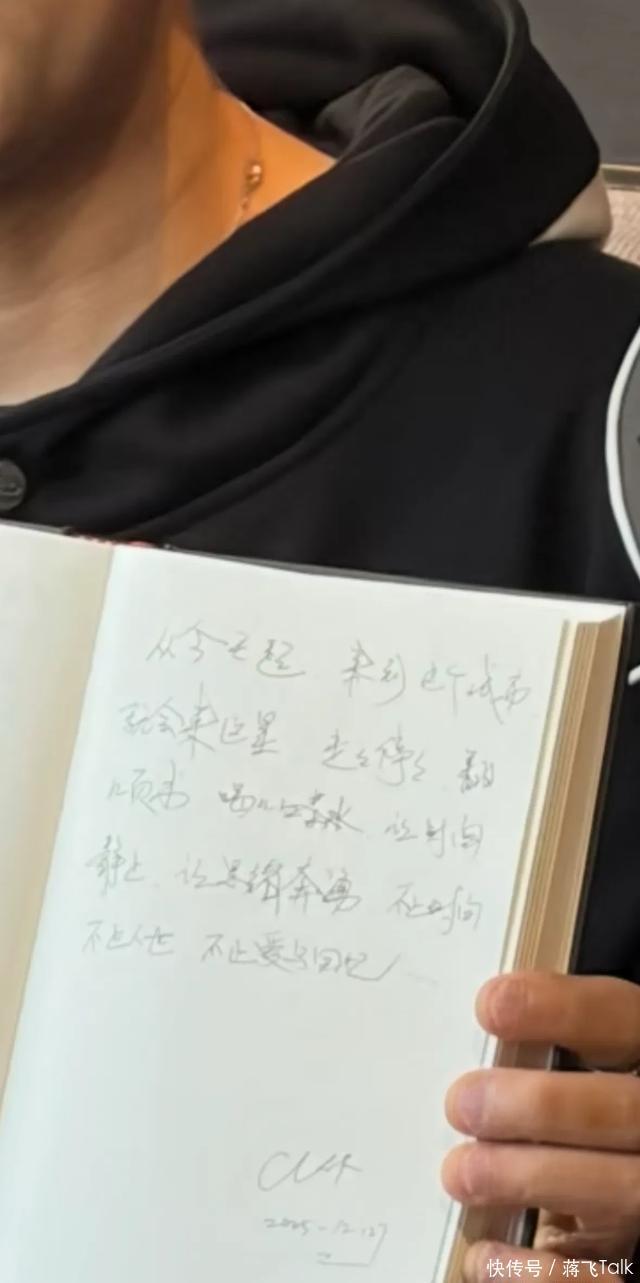 从今天起 来到这个城市
就会来这里 走走停停 翻
几页书 喝几口茶水 让时间
静止 让思绪奔涌 不止时间
不止人世 不止爱与回忆
2025-12.127
快传号 / 蒋飞Talk